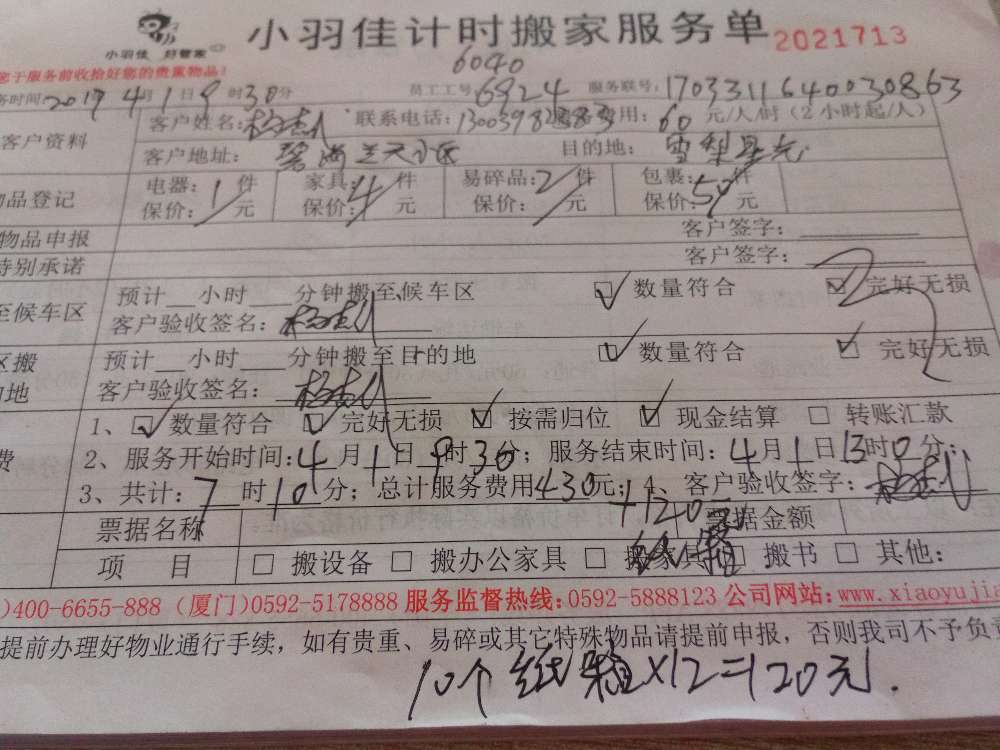 小羽佳 好管家
小羽佳计时搬家服务单 2021713
您于服务前收拾好您的贵重物品！
6040
务时间：2017 4月1日9时30分 员工工号：6924 服务联号：1703311640030863
客户资料
客户姓名： 联系电话： 用：60元/人/时（2小时起/人）
客户地址： 目的地：
物品登记
电器：1件 家具：4件 易碎品：2件 包裹：50件
保价： 元 保价： 元 保价： 元 保价： 元
物品申报 客户签字：
特别承诺 客户签字：
至候车区
预计__小时__分钟搬至候车区 数量符合 完好无损
客户验收签名：
区搬
的地
预计__小时__分钟搬至目的地 数量符合 完好无损
客户验收签名：
1、数量符合 完好无损 按需归位 现金结算 □ 转账汇款
费
2、服务开始时间：4月1日9时30分；服务结束时间：4月1日13时0分；
3、共计：7时10分；总计服务费用430元；4、客户验收签字：
+120
票据名称 票据金额
项 目 □ 搬设备 □ 搬办公家具 □ 搬家具 □ 搬书 □ 其他：
纸箱
)400-6655-888（厦门）0592-5178888 服务监督热线：0592-5888123 公司网站：www.xiaoyujia
提前办理好物业通行手续，如有贵重、易碎或其它特殊物品请提前申报，否则我司不予负责
10个纸箱×12=120元.